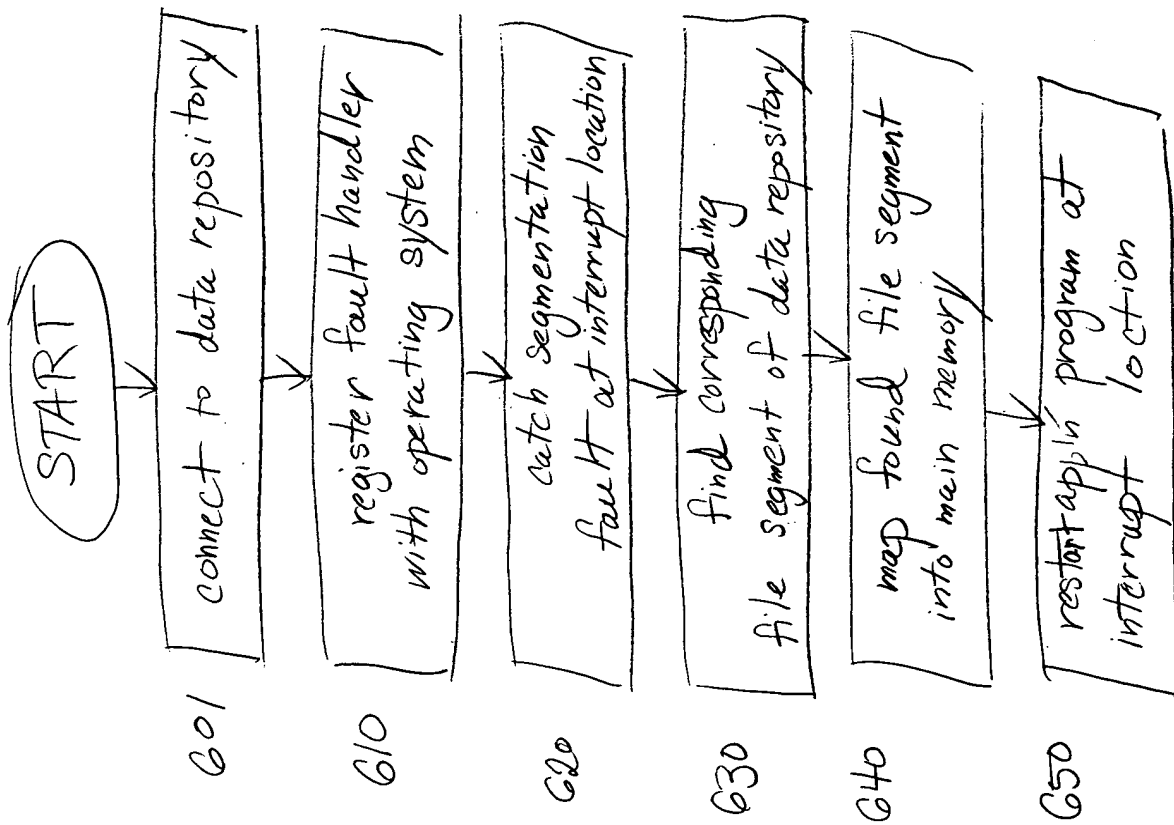 START
601
connect to data repository
610
register fault handler
with operating system
620
catch segmentation
fault at interrupt location
630
find corresponding
file segment of data repository
640
map found file segment
into main memory
650
restart appl'n program at
interrupt loction